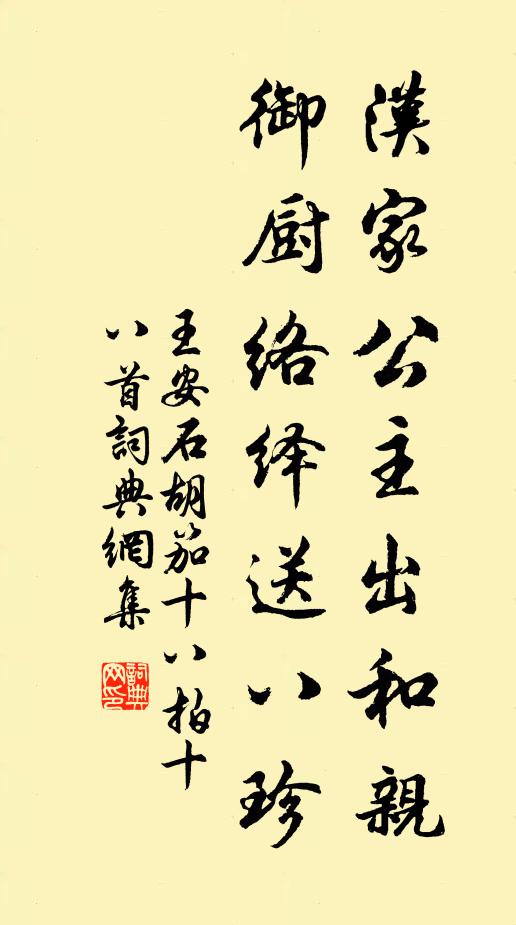 漢家公主出和親
御厨络绎送八珍
王安石胡笳十八拍十
八首詞典網集
詞典
网印